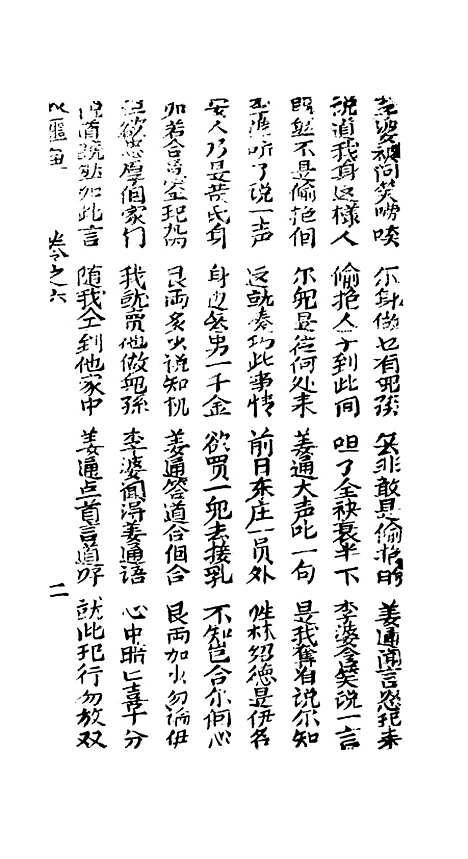 李婆被问笑嘻唉 尔身做乜有 孩 莫非敢是偷抱的 姜通闻言怒起来
说道我身这様人 偷抱人子到此间 呾了全袂衰半下 李婆含笑说一言
既然不是偷抱個 尔児是從何处来 姜通大声叱一句 是我 自说尔知
李婆听了说一声 这就凑巧此事情 前日东庄一员外 姓林绍德是伊名
安人乃是黄氏身 身边無男一千金 欲買一児去接乳 不知岂合尔個心
如若合意 艮両多少说知机 姜通答道合個合 艮両加少勿论伊
欲忠厚個家门 我就賣他做児孫 李婆闻得姜通语 心中暗匕喜十分
说道既然如此言 随我仝到他家中 姜通点首言道好 就此起行勿放双
卷之六 二